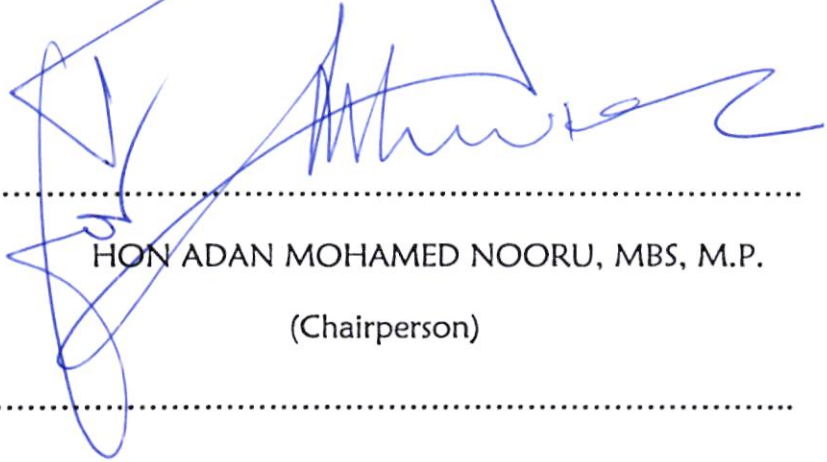 HON ADAN MOHAMED NOORU, MBS, M.P.
(Chairperson)